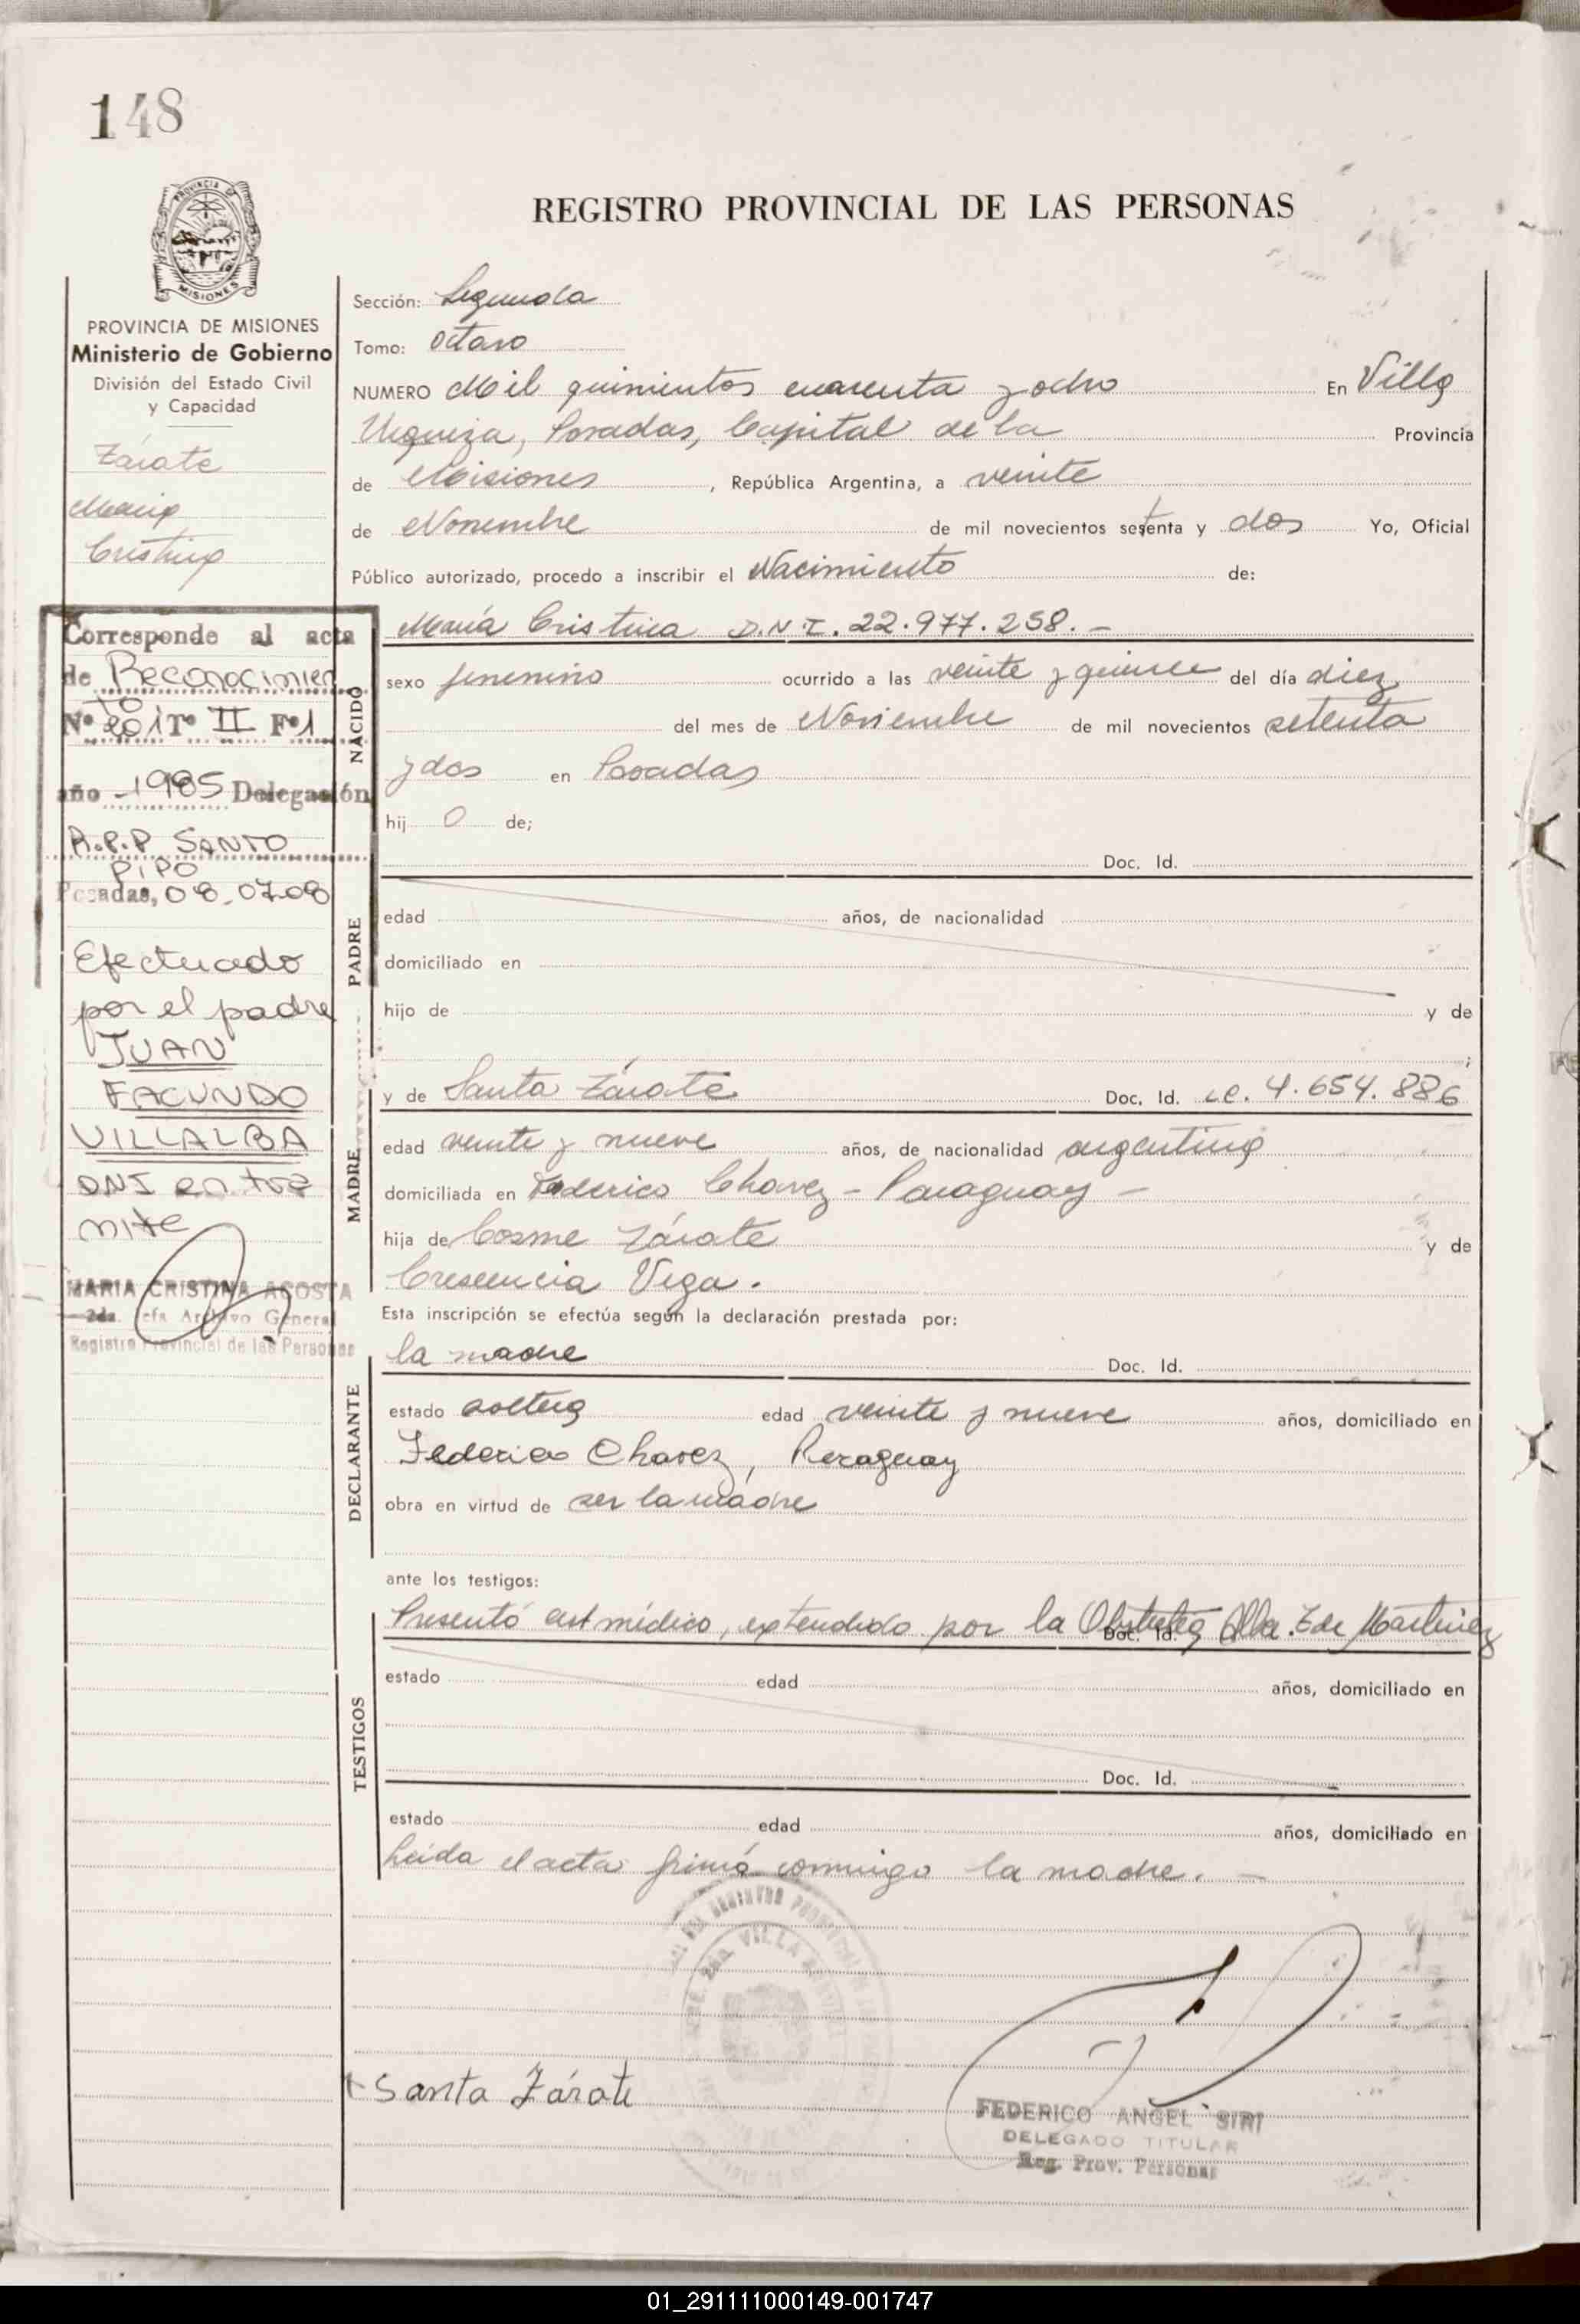 148
PROVINCIA DE MISIONES
REGISTRO PROVINCIAL DE LAS PERSONAS
PROVINCIA DE MISIONES
Ministerio de Gobierno
División del Estado Civil
y Capacidad
Zárate
María
Cristina
Corresponde al acta
de Reconocimien
to
Nº 201 Tº II Fº 1
año 1985 Delegación
R.P.P SANTO
PIPO
Posadas, 08-07-08
Efectuado
por el padre
JUAN
FACUNDO
VILLALBA
DNI en trá
mite
MARIA CRISTINA ACOSTA
2da. Jefa Archivo General
Registro Provincial de las Personas
Sección: Segunda
Tomo: octavo
NUMERO Mil quinientos cuarenta y ocho En Villa
Urquiza, Posadas, Capital de la Provincia
de Misiones, República Argentina, a veinte
de Noviembre de mil novecientos setenta y dos Yo, Oficial
Público autorizado, procedo a inscribir el Nacimiento de:
María Cristina D.N.I. 22.977.258.-
NACIDO
sexo femenino ocurrido a las veinte y quince del día diez
del mes de Noviembre de mil novecientos setenta
y dos en Posadas
hij o de;
Doc. Id.
PADRE
edad años, de nacionalidad
domiciliado en
hijo de y de
;
y de Santa Zárate Doc. Id. L.C. 4.654.886
MADRE
edad veinte y nueve años, de nacionalidad argentina
domiciliada en Federico Chavez - Paraguay -
hija de Cosme Zárate y de
Crescencia Vega.
Esta inscripción se efectúa según la declaración prestada por:
la madre Doc. Id.
DECLARANTE
estado soltera edad veinte y nueve años, domiciliado en
Federico Chavez, Paraguay
obra en virtud de ser la madre
ante los testigos:
Presentó cert médico, extendido por la Obstetra Alba. Z de Martinez
Doc. Id.
TESTIGOS
estado edad años, domiciliado en
Doc. Id.
estado edad años, domiciliado en
Leída el acta firmó conmigo la madre. -
VILLA
Santa Zárate
FEDERICO ANGEL SIRI
DELEGADO TITULAR
Reg. Prov. Personas
01_291111000149-001747